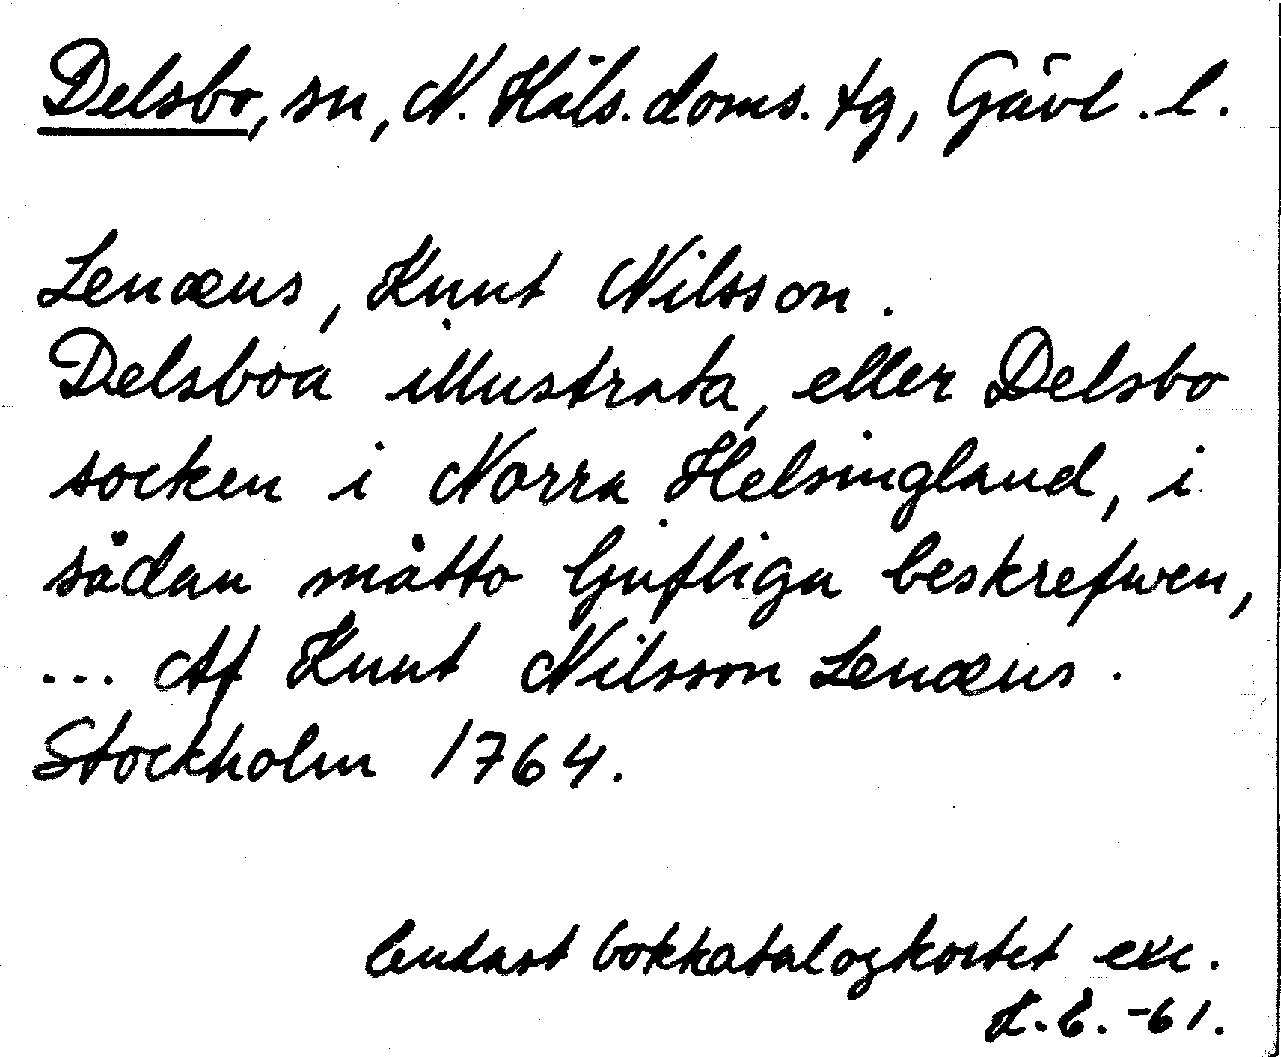 Delsbo, sn, N. Häls. doms. tg, Gävl. l.
Lenæus, Knut Nilsson.
Delsboa illustrata, eller Delsbo
socken i Norra Helsingland, i
sådan måtto ljufliga beskrefwen,
... Af Knut Nilsson Lenæus.
Stockholm 1764.
Endast bokkatalogkortet exc.
K.E. -61.